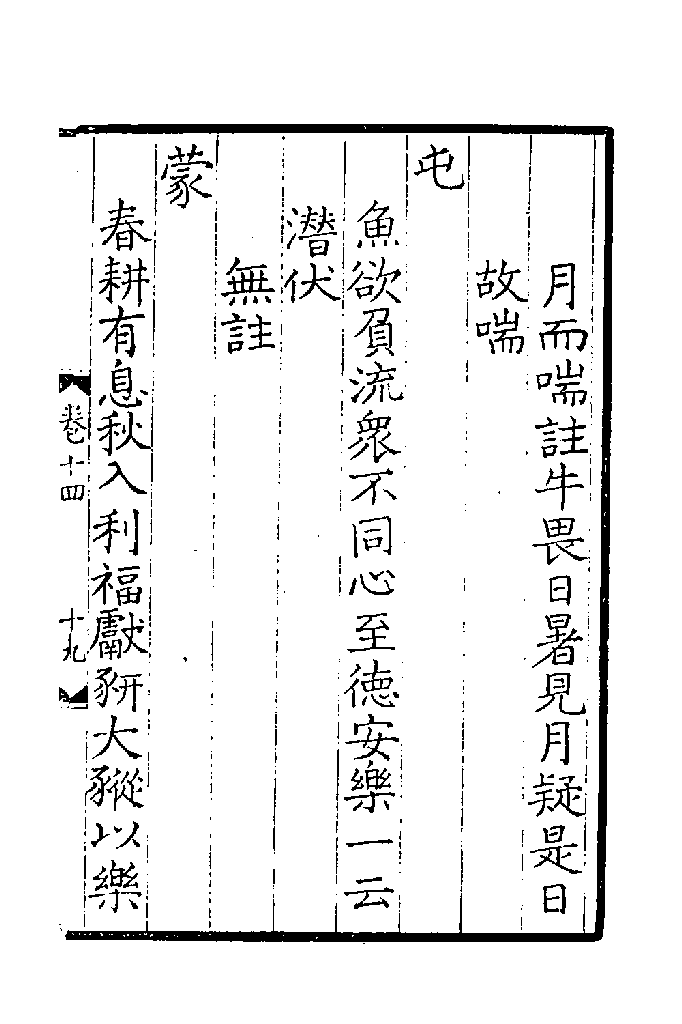 月而喘註牛畏日暑見月疑是日
故喘
屯
魚欲負流衆不同心至德安樂一云
潛伏
無註
蒙
春耕有息秋入利福獻豜大豵以樂
卷十四
十九